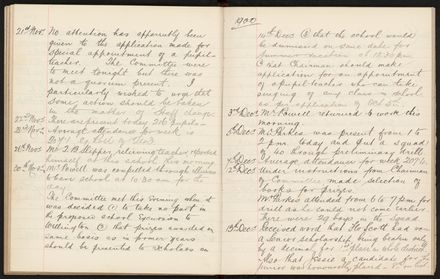 21st Nov. No attention has apparently been
given to the application made for
special appointment of a pupil-
teacher. The Committee were
to meet tonight but there was
not a quorum present. I
particularly wished to urge that
some action should be taken
in the matter of staff change.
22nd Nov. There are present to-day 216 Pupils.
Average attendance for week is
Mr. J. B. Hopper, relieving teacher reported
himself at this school this morning.
Mr Powell was compelled through illness
to leave school at 10.30 am for the
day.
The Committee met this evening when it
was decided to take no part in
the proposed school excursion to
Wellington that prizes awarded on
same basis as in former years
should be presented to scholars on
1900
14th Decr that the school would
be dismissed on same date for
summer vacation at 12.30 p.m.
that Chairman should make
application for an appointment
of a pupil-teacher who can take
singing of any class in school
as per application of Oct
3rd Dec. Mr Powell returned to work this
morning.
Mr Parkes was present from 1 to
2 p.m. today and put a squad
of 40 through preliminary drills
Average attendance for week 207
Under instructions from Chairman
of Committee made selection of
books for prizes.
Mr Parkes attended from 6 to 7 p.m. for
drill as he could not come earlier.
There were 29 boys in the squad
Received word that H. Scott had won
a Senior scholarship, being beaten only
by a decimal for
Also that a candidate for
Junior was